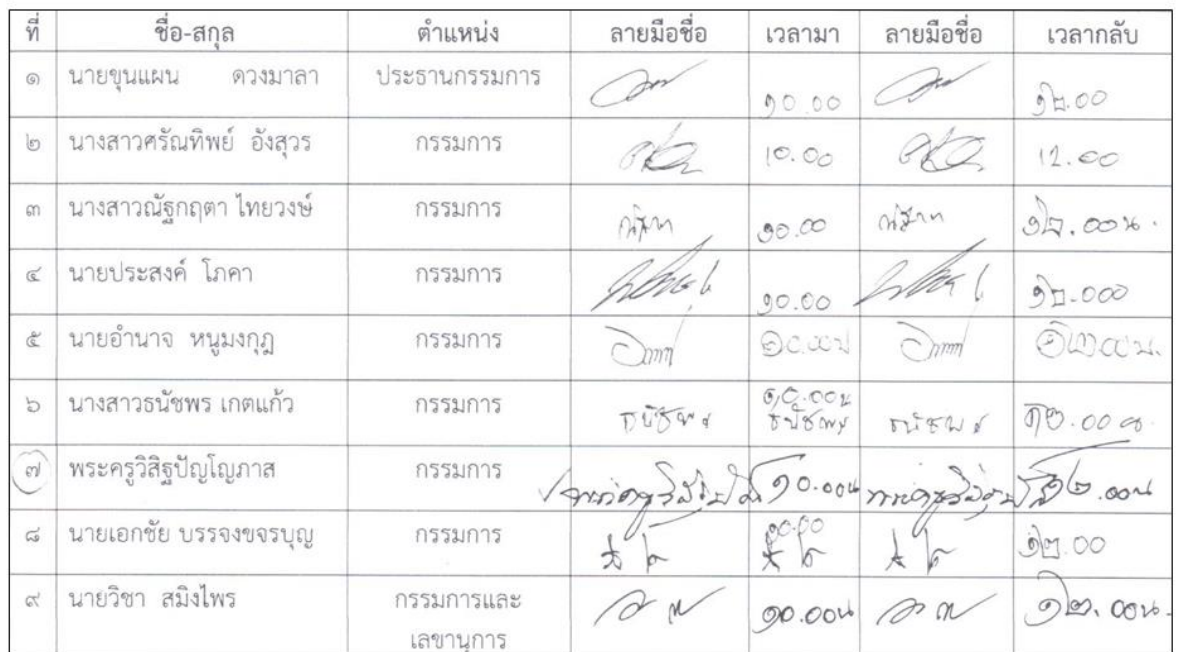 ที่ ชื่อ-สกุล ตำแหน่ง ลายมือชื่อ เวลามา ลายมือชื่อ เวลากลับ
๑ นายขุนแผน ดวงมาลา ประธานกรรมการ ๑๐.๐๐ ๑๒.๐๐
๒ นางสาวศรัณทิพย์ อังสุวร กรรมการ 10.00 12.00
๓ นางสาวณัฐกฤตา ไทยวงษ์ กรรมการ ๑๐.๐๐ ๑๒.๐๐น.
๔ นายประสงค์ โภคา กรรมการ ๑๐.๐๐ ๑๒.๐๐๐
๕ นายอำนาจ หนูมงกุฎ กรรมการ ๑๐.๐๐น ๑๒.๐๐น.
๖ นางสาวธนัชพร เกตแก้ว กรรมการ ธนัชพร ๑๐.๐๐น ธนัชพร ธนัชพร ๑๒.๐๐น.
๗ พระครูวิสิฐปัญโญภาส กรรมการ ๑๐.๐๐น ๑๒.๐๐น
๘ นายเอกชัย บรรจงขจรบุญ กรรมการ ๑๐.๐๐ ๑๒.๐๐
๙ นายวิชา สมิงไพร กรรมการและ ๑๐.๐๐น ๑๒.๐๐น.
เลขานุการ